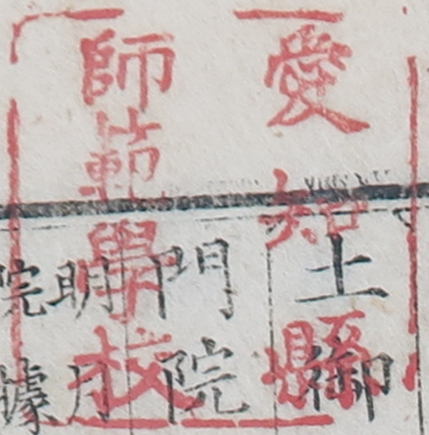 愛知縣
師範學校
土御
門院
明月
院據